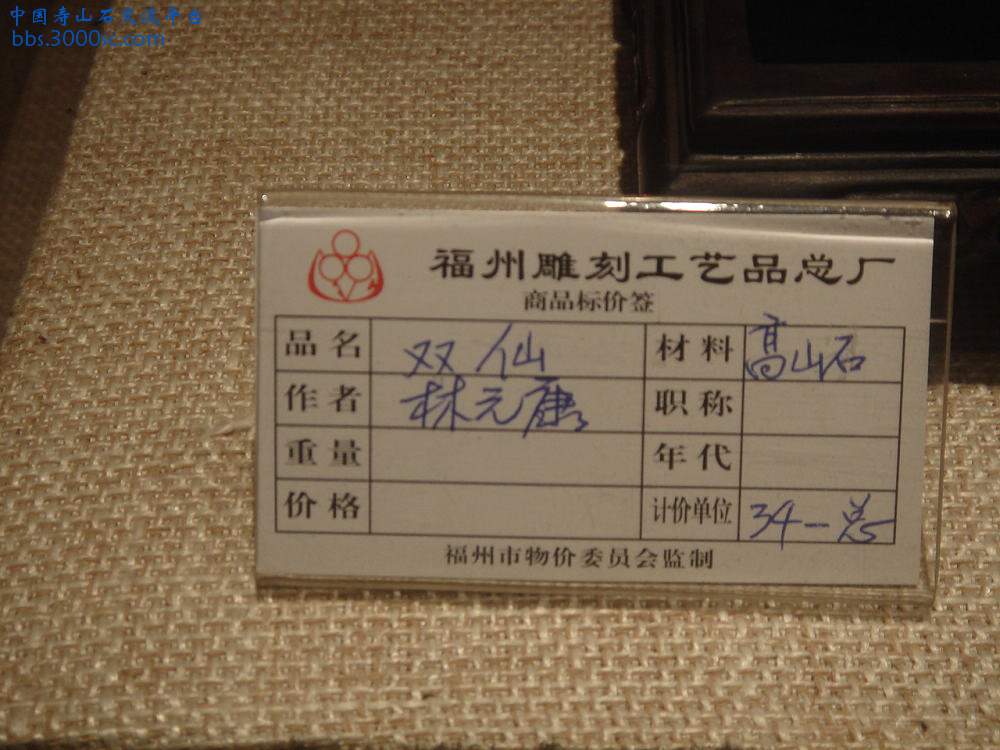 中国寿山石交流平台
bbs.3000sc.com
福州雕刻工艺品总厂
商品标价签
品名 双仙 材料 高山石
作者 林元康 职称
重量 年代
价格 计价单位 34-总5
福州市物价委员会监制